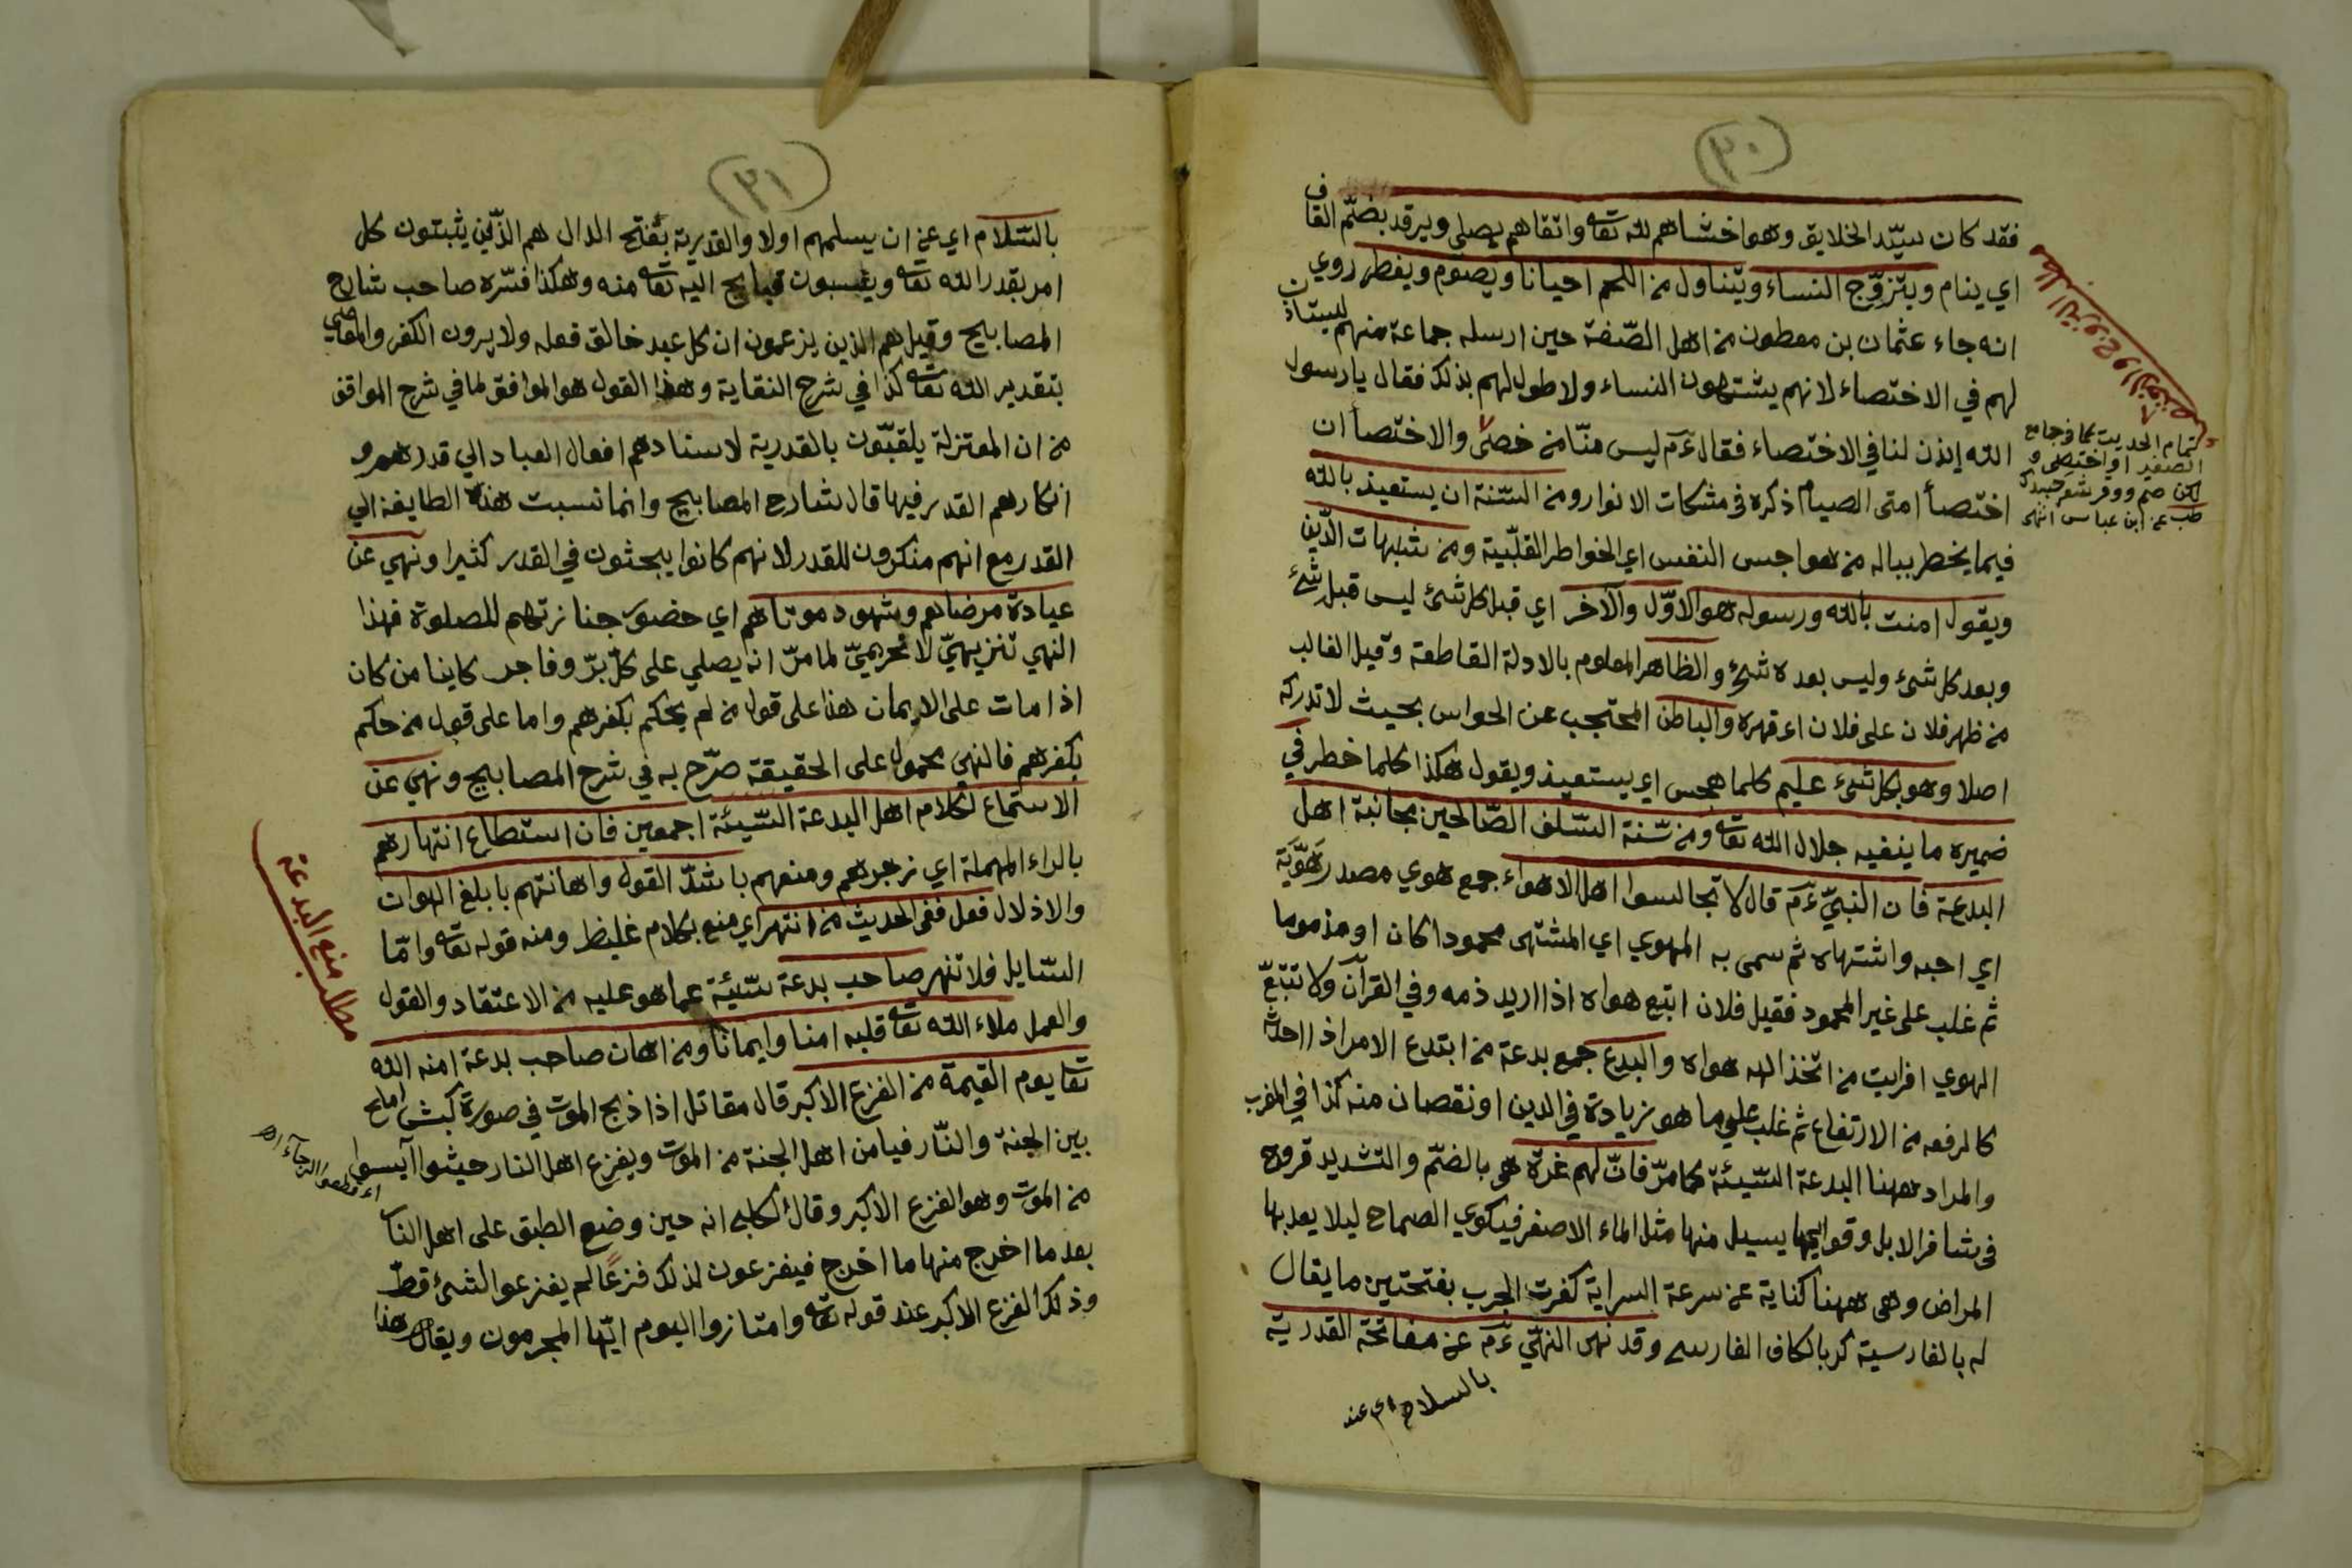 (٣٠)
فقد كان سيّد الخلايق وهو اخشاهم لله تعه واتقاهم يصلي ويرقد بضمّ القاف
اي ينام ويتزوّج النساء ويتناول من اللحم احيانا ويصوم ويفطر روي
انه جاء عثمان بن مطعون من اهل الصّفة حين ارسله جماعة منهم ليستأذن
لهم في الاختصاء لانهم يشتهون النساء ولا طول لهم بذلك فقال يا رسول
الله إئذن لنا في الاختصاء فقال ءم ليس منّا من خصى والاختصا ان
اختصأ امتى الصيام ذكره في مشكات الانوار ومن السّنة ان يستعيذ بالله
فيما يخطر بباله من هواجس النفس اي الخواطر القلبّية ومن شبهات الدّين
ويقول امنت بالله ورسوله هو الاوّل والآخر اي قبل كل شئ ليس قبل شئ
وبعد كل شئ وليس بعده شئ والظاهر المعلوم بالادلة القاطعة وقيل الغالب
من ظهر فلان على فلان اى قهره والباطن المحتجب عن الحواس بحيث لا تدركه
اصلا وهو بكل شئ عليم كلما هجس اي يستعيذ ويقول هكذا كلما خطر في
ضميره ما ينفيه جلال الله تعه ومن سّنة السّلف الصّالحين مجانبة اهل
البدعة فان النبيّ ءم قال لا تجالسوا اهل الاهواء جمع هوي مصدر هَوِيَه
اي احبه واشتهاه ثم سمى به المهوي اي المشتهى محمودا كان او مذموما
ثم غلب على غير المحمود فقيل فلان ابتع هواه اذا اريد ذمه وفي القرآن ولا تتبّع
الهوي افرايت من اتخذ الهه هواه والبدع جمع بدعة من ابتدع الامر اذا احدثه
كالرفعه من الارتفاع ثم غلب على ما هو زيادة في الدين او نقصان منه كذا في المغرب
والمراد ههنا البدعة السّيئة كما مرّ فانّ لهم عرّة هى بالضمّ والتشديد قروح
في مشافر الابل وقوايمها يسيل منها مثل الماء الاصفر فيكوي الصحاح ليلا يعديها
المراض وهى ههنا كناية عن سرعة السراية كعرت الجرب بفتحتين ما يقال
له بالفارسية كر بالكاف الفارسى وقد نهى النبيّ ءم عن مفاتحة القدرية
بالسلام اي عند
تمام الحديث كما في جامع
الصغير او اختصى و
لكن صم ووفر شعر جسدك
طب عن ابن عباس انتهى
(٣١)
بالسّلام اي عن ان يسلمهم اولا والقدرية بفتح الدال هم الذّين يثبتون كل
امر بقدر الله تعه وينسبون قبايح اليه تعه منه وهكذا فسّره صاحب شارح
المصابيح وقيل هم الذين يزعمون ان كل عبد خالق فعله ولا يرون الكفر والمعاصي
بتقدير الله تعه كذا في شرح النقاية وهذا القول هو الموافق لما في شرح المواقف
من ان المعتزلة يلقبّون بالقدرية لاسنادهم افعال العباد الي قدرهم و
انكارهم القدر فيها قال شارح المصابيح وانما نسبت هذه الطايفة الي
القدر مع انهم منكرون للقدر لانهم كانوا يبحثون في القدر كثيرا ونهي عن
عيادة مرضاهم وشهود موتاهم اي حضور جنازتهم للصلوة فهذا
النهي تنزيهيّ لا تحريميّ لما مرّ انه يصلي على كلّ برّ وفاجر كاينا من كان
اذا مات على الايمان هذا على قول من لم يحكم بكفرهم واما على قول من حكم
بكفرهم فالنهي محمول على الحقيقة صرّح به في شرح المصابيح ونهي عن
الاستماع لكلام اهل البدعة السّيئة اجمعين فان استطاع انتهارهم
بالراء المهملة اي زجرهم ومنعهم باشدّ القول واهانتهم بابلغ الهوات
والاذلال فعل ففي الحديث من انتهر اي منع بكلام غليظ ومنه قوله تعه وامّا
السّايل فلا تنهر صاحب بدعة سّيئة عما هو عليه من الاعتقاد والقول
والعمل ملاء الله تعه قلبه امنا وايمانا ومن اهان صاحب بدعة امنه الله
تعا يوم القيمة من الفزع الاكبر قال مقاتل اذا ذبح الموت في صورة كبش املح
بين الجنة والنّار فيامن اهل الجنة من الموت ويفزع اهل النار حيث آيسوا
من الموت وهو الفزع الاكبر وقال الكلبي انه حين وضع الطبق على اهل النار
بعد ما اخرج منها ما اخرج فيفزعون لذلك فزعًا لم يفزعوا لشئ قطّ
وذلك الفزع الاكبر عند قوله تعه وامتازوا اليوم ايّها المجرمون ويقال هذا
مطلب منع البدعة
اى قطعوا الرجآء